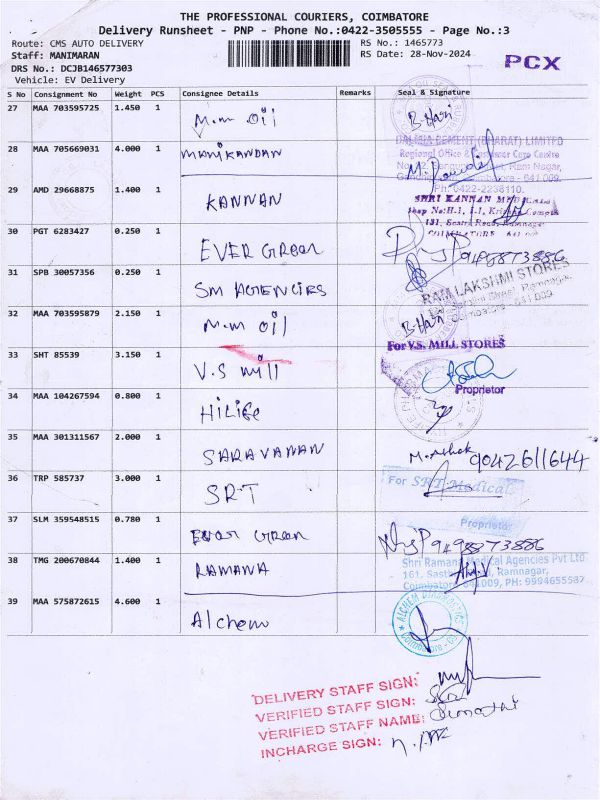 THE PROFESSIONAL COURIERS, COIMBATORE
Delivery Runsheet - PNP - Phone No.:0422-3505555 - Page No.:3
Route: CMS AUTO DELIVERY
Staff: MANIMARAN
DRS No.: DCJB146577303
Vehicle: EV Delivery
RS No.: 1465773
RS Date: 28-Nov-2024
PCX
S No Consignment No Weight PCS Consignee Details Remarks Seal & Signature
27 MAA 703595725 1.450 1 M.m oil B.Hari
DALMIA CEMENT (BHARAT) LIMITED
28 MAA 705669031 4.000 1 MANIKANDAN
Ph: 0422-2238110.
29 AMD 29668875 1.400 1 KANNAN
SHRI KANNAN MEDICALS
30 PGT 6283427 0.250 1 EVER Green 9498873886
31 SPB 30057356 0.250 1 SM AGENCIES
RAM LAKSHMI STORES
32 MAA 703595879 2.150 1 M.m oil B.Hari
For V.S. MILL STORES
33 SHT 85539 3.150 1 V.S mill
Proprietor
34 MAA 104267594 0.800 1 HiLife
35 MAA 301311567 2.000 1 SARAVANAN M.Ashok 9042611644
36 TRP 585737 3.000 1 S.R.T
For SRT Medicals
Proprietor
37 SLM 359548515 0.780 1 Ever Green 9498873886
38 TMG 200670844 1.400 1 RAMANA
Shri Ramana Medical Agencies Pvt Ltd
161, Sastri Ramnagar,
Coimbatore 641009, PH: 9994655587
39 MAA 575872615 4.600 1 Alchem
ALCHEM DIAGNOSTICS
DELIVERY STAFF SIGN:
VERIFIED STAFF SIGN:
VERIFIED STAFF NAME:
INCHARGE SIGN: